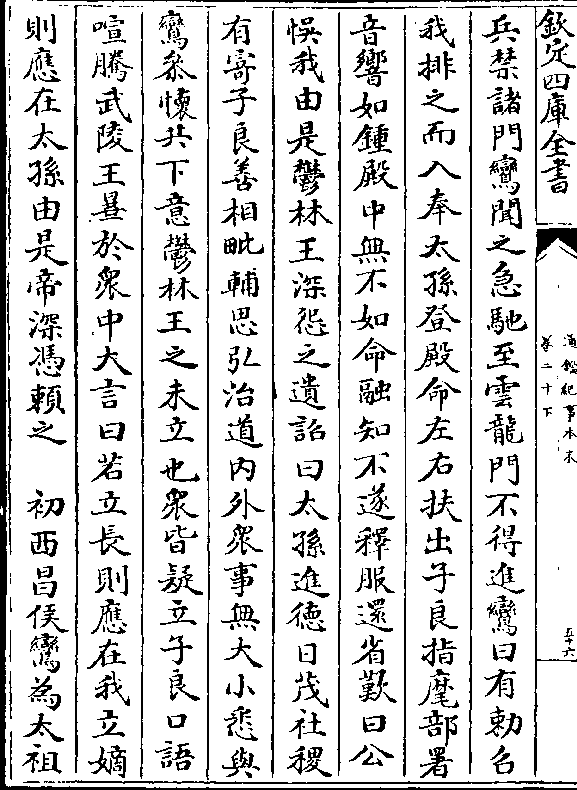 欽定四庫全書
通鑑紀事本末
卷二十下
五十六
兵禁諸門鸞聞之急馳至雲龍門不得進鸞曰有勅召
我排之而入奉太孫登殿命左右扶出子良指麾部署
音響如鍾殿中無不如命融知不遂釋服還省歎曰公
悞我由是鬱林王深怨之遺詔曰太孫進德日茂社稷
有寄子良善相毗輔思弘治道内外衆事無大小悉與
鸞叅懷共下意鬱林王之未立也衆皆疑立子良口語
喧騰武陵王曅於衆中大言曰若立長則應在我立嫡
則應在太孫由是帝深憑賴之　初西昌侯鸞為太祖